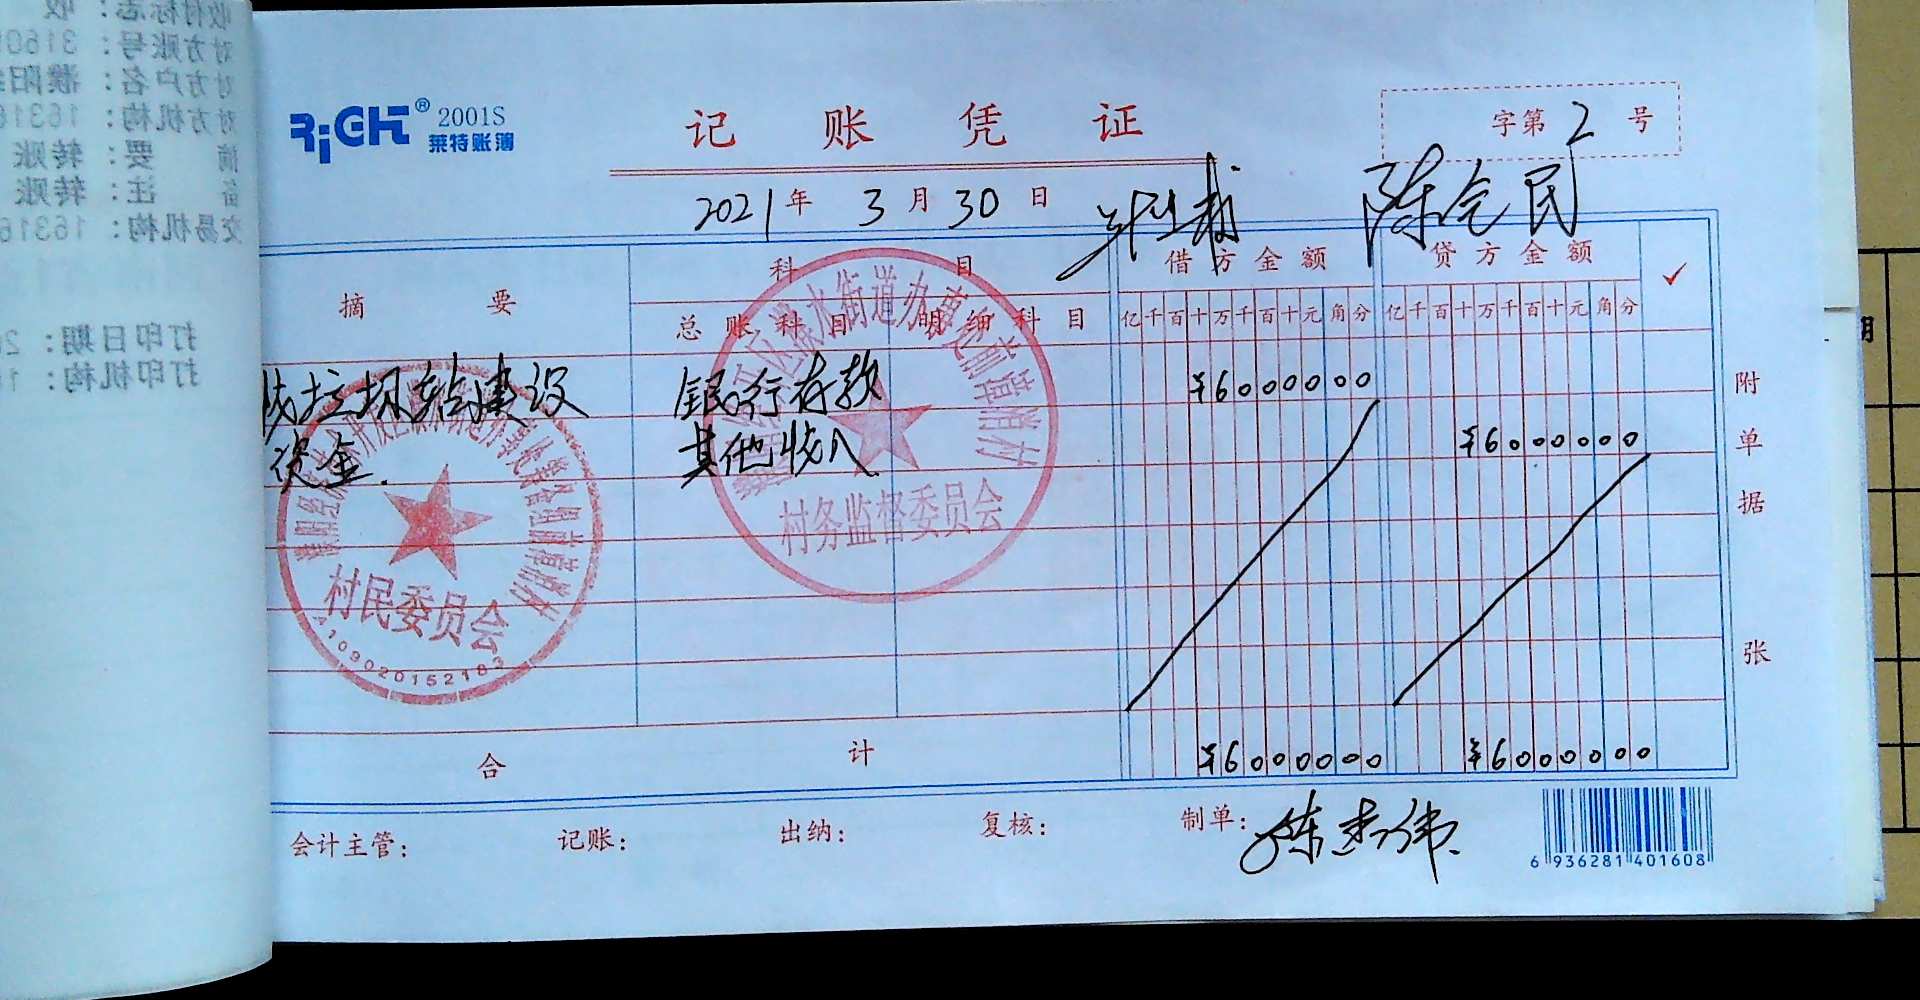 收付标志：收
对方账号：3160
对方户名：濮阳
对方机构：16316
摘 要：转账
备 注：转账
交易机构：16316
打印日期：20
打印机构：16
RiGHT® 2001S
莱特账簿
记账凭证
字第 2 号
2021年 3月30日
陈
摘要
科目
借方金额
贷方金额
✓
总账科目
明细科目
亿千百十万千百十元角分
亿千百十万千百十元角分
垃圾站建设
银行存款
¥6000000
附
资金.
其他收入
¥6000000
单
据
张
村务监督委员会
村民委员会
4109020152183
合计
¥6000000
¥6000000
会计主管：
记账：
出纳：
复核：
制单：
6 936281 401608